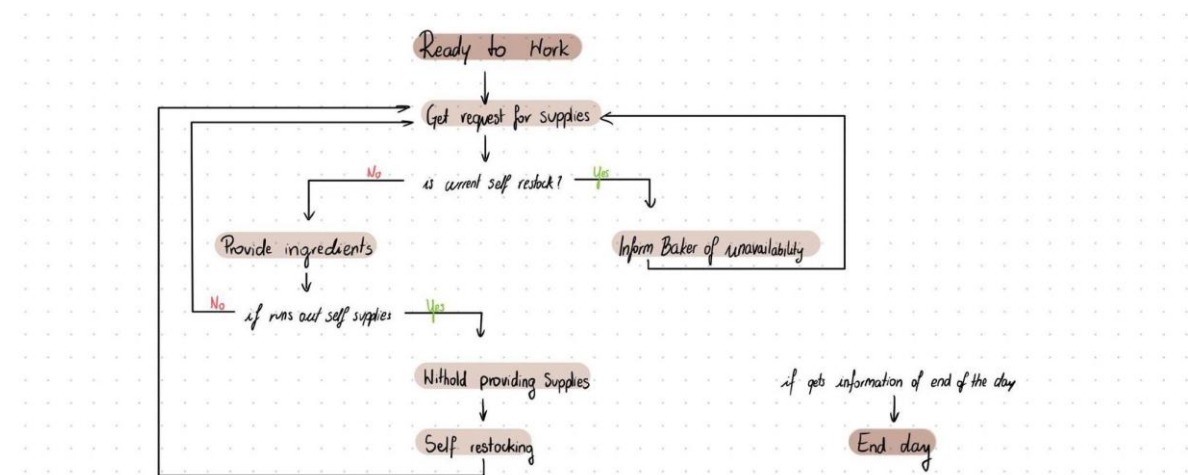 Ready to Work
Get request for supplies
No
is current self restock?
Yes
Provide ingredients
Inform Baker of unavailability
No
if runs out self supplies
Yes
Withold providing Supplies
if gets information of end of the day
Self restocking
End day